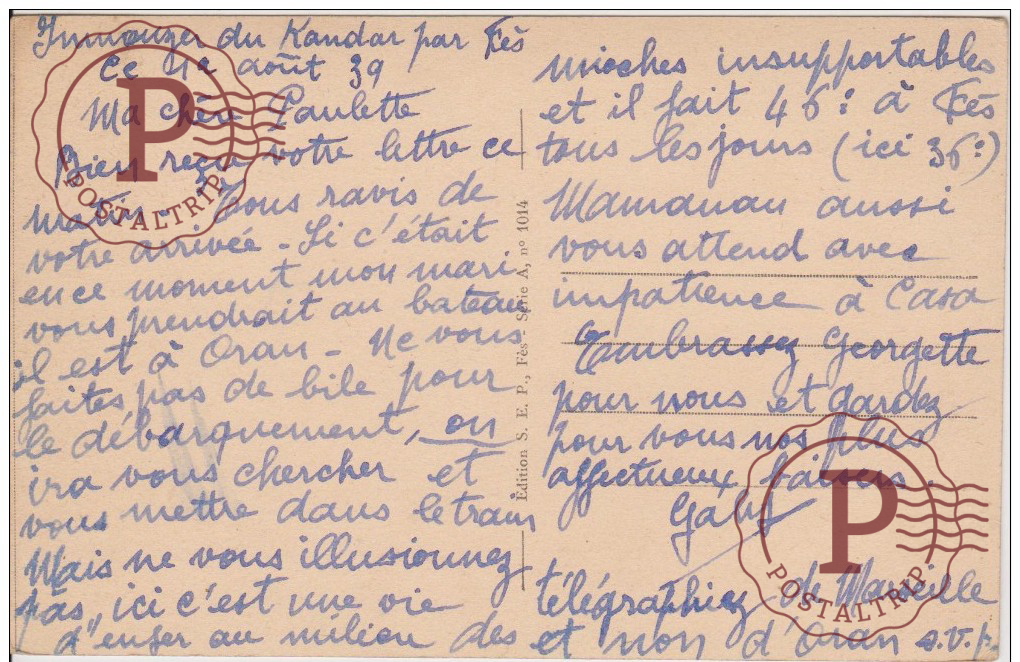 Immouzer du Kandar par Fès
Ce 1er août 39
Ma chère Paulette
Bien reçu votre lettre ce
matin. Tous ravis de
votre arrivée - Si c'était
en ce moment mon mari
vous prendrait au bateau
il est à Oran - Ne vous
faites pas de bile pour
le débarquement, on
ira vous chercher et
vous mettre dans le train
Mais ne vous illusionnez
pas, ici c'est une vie
d'enfer au milieu des
mioches insupportables
et il fait 46° à Fès
tous les jours (ici 36°)
Mamanan aussi
vous attend avec
impatience à Casa
Embrassez Georgette
pour nous et gardez
pour vous nos plus
affectueux baisers.
Gaby
télégraphiez de Marseille
et non d'Oran s.v.p.
Édition S. E. P., Fès - Série A, n° 1014
P
POSTALTRIP
P
POSTALTRIP